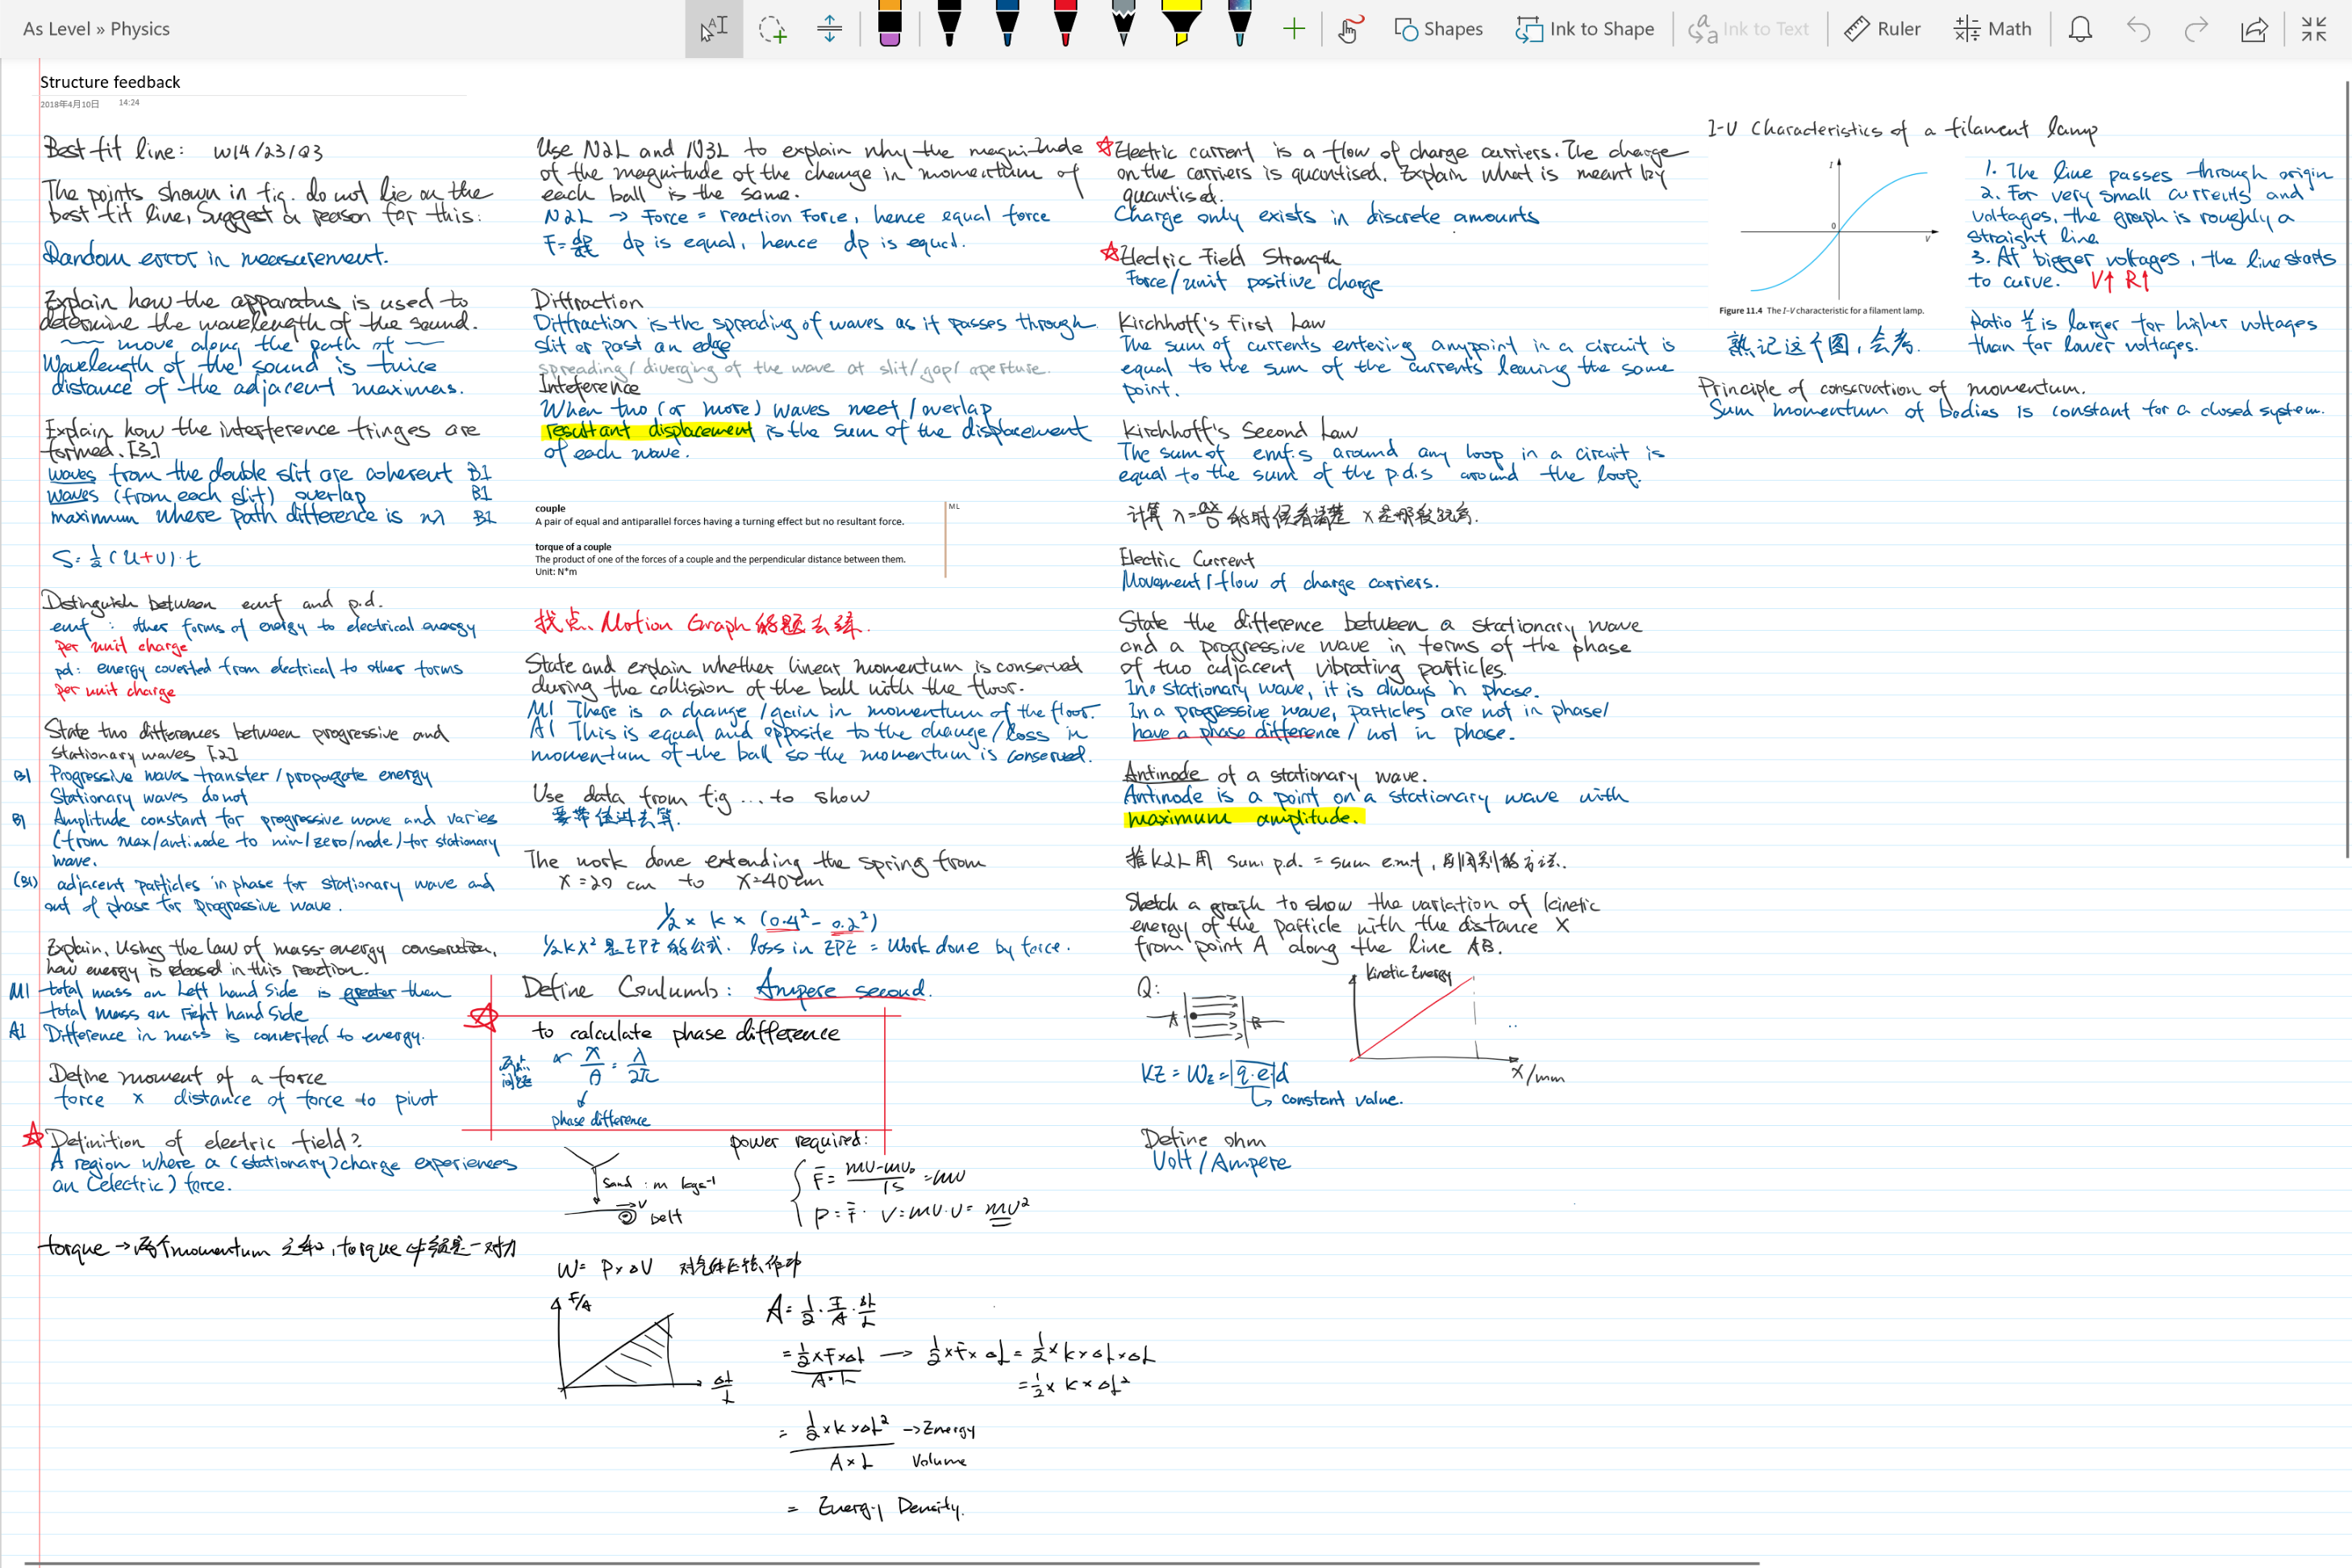 As Level » Physics
Shapes
Ink to Shape
Ink to Text
Ruler
Math
Structure feedback
2018年4月10日 14:24
Best fit line: W14/23/Q3
The points shown in fig. do not lie on the
best fit line, Suggest a reason for this:
Random error in measurement.
Explain how the apparatus is used to
determine the wavelength of the sound.
~~ move along the path of ~~
Wavelength of the sound is twice
distance of the adjacent maximas.
Explain how the interference fringes are
formed. [3]
waves from the double slit are coherent B1
waves (from each slit) overlap B1
maximum where path difference is nλ B1
S = ½ (u+v)·t
Distinguish between emf and p.d.
emf : other forms of energy to electrical energy
per unit charge
pd: energy coverted from electrical to other forms
per unit charge
State two differences between progressive and
stationary waves [2]
B1 Progressive waves transfer/propagate energy
Stationary waves do not
B1 Amplitude constant for progressive wave and varies
(from max/antinode to min/zero/node) for stationary
wave.
(B1) adjacent particles in phase for stationary wave and
out of phase for progressive wave.
Explain, Using the law of mass-energy conservation,
how energy is released in this reaction.
M1 total mass on Left hand Side is greater then
total mass on right hand side
A1 Difference in mass is converted to energy.
Define moment of a force
force x distance of force to pivot
Definition of electric field?
A region where a (stationary) charge experiences
an (electric) force.
torque → 两个momentum 之和, torque 必须是一对力
Use N2L and N3L to explain why the magnitude
of the magnitude of the change in momentum of
each ball is the same.
N2L → Force = reaction Force, hence equal force
F = dp/dt dp is equal, hence dp is equal.
Diffraction
Diffraction is the spreading of waves as it passes through
slit or past an edge
spreading/diverging of the wave at slit/gap/aperture.
Inteference
When two (or more) waves meet/overlap
resultant displacement is the sum of the displacement
of each wave.
couple
A pair of equal and antiparallel forces having a turning effect but no resultant force.
ML
torque of a couple
The product of one of the forces of a couple and the perpendicular distance between them.
Unit: N*m
找点 Motion Graph 的题去练.
State and explain whether linear momentum is conserved
during the collision of the ball with the floor.
M1 There is a change/gain in momentum of the floor.
A1 This is equal and opposite to the change/loss in
momentum of the ball so the momentum is conserved.
Use data from fig ... to show
要带值进去算.
The work done extending the spring from
x = 20 cm to x = 40 cm
½ × k × (0.4² − 0.2²)
½kx² 是 EPE 的公式. loss in EPE = Work done by force.
Define Coulumb: Ampere second.
to calculate phase difference
x/θ = λ/2π
phase difference
power required:
Sand : m kgs⁻¹
v
belt
F̄ = (mv−mv₀)/1s = mv
P = F̄ · V = mv·v = mv²
W = P × ΔV
F/A
ΔL/L
A = ½ · F/A · ΔL/L
= (½×F×ΔL)/(A·L) → ½×F×ΔL = ½×k×ΔL×ΔL
= ½ × k × ΔL²
= (½×k×ΔL²)/(A×L) → Energy
Volume
= Energy Density.
Electric current is a flow of charge carriers. The charge
on the carriers is quantised. Explain what is meant by
quantised.
Charge only exists in discrete amounts
Electric Field Strength
Force/unit positive charge
Kirchhoff's First Law
The sum of currents entering any point in a circuit is
equal to the sum of the currents leaving the same
point.
Kirchhoff's Second Law
The sum of emf.s around any loop in a circuit is
equal to the sum of the p.d.s around the loop.
计算 λ = ax/D 的时候看清楚 x 是哪段距离.
Electric Current
Movement/flow of charge carriers.
State the difference between a stationary wave
and a progressive wave in terms of the phase
of two adjacent vibrating particles.
In a stationary wave, it is always in phase.
In a progressive wave, particles are not in phase/
have a phase difference/ not in phase.
Antinode of a stationary wave.
Antinode is a point on a stationary wave with
maximum amplitude.
推 K2L 用 sum p.d. = sum e.m.f, 别用别的方法.
Sketch a graph to show the variation of kinetic
energy of the particle with the distance x
from point A along the line AB.
Q:
A
B
Kinetic Energy
x/mm
constant value.
Define ohm
Volt/Ampere
I-V Characteristics of a filament lamp
I
0
V
Figure 11.4 The I–V characteristic for a filament lamp.
1. The line passes through origin
2. For very small currents and
voltages, the graph is roughly a
straight line
3. At bigger voltages, the line starts
to curve. V↑ R↑
Ratio V/I is larger for higher voltages
than for lower voltages.
熟记这个图, 会考.
Principle of conservation of momentum.
Sum momentum of bodies is constant for a closed system.